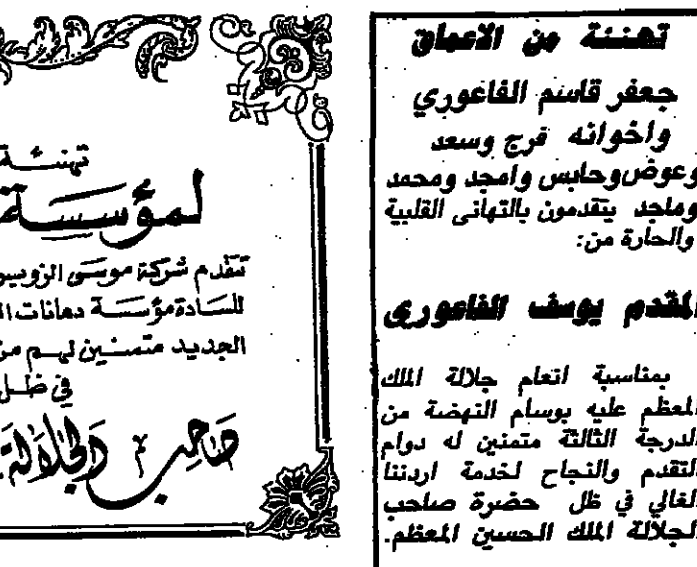 تهنئة من الاعماق
جعفر قاسم الفاعوري
واخوانه فرج وسعد
وعوض وحابس وامجد ومحمد
وماجد يتقدمون بالتهانى القلبية
والحارة من:
المقدم يوسف الفاعورى
بمناسبة انعام جلالة الملك
المعظم عليه بوسام النهضة من
الدرجة الثالثة متمنين له دوام
التقدم والنجاح لخدمة اردننا
الغالي في ظل حضرة صاحب
الجلالة الملك الحسين المعظم.
تهنئة
لمؤسسة
تتقدم شركة موسى
للسادة مؤسسة دهانات
الجديد متمنين لهم
في ظل
صاحب الجلالة